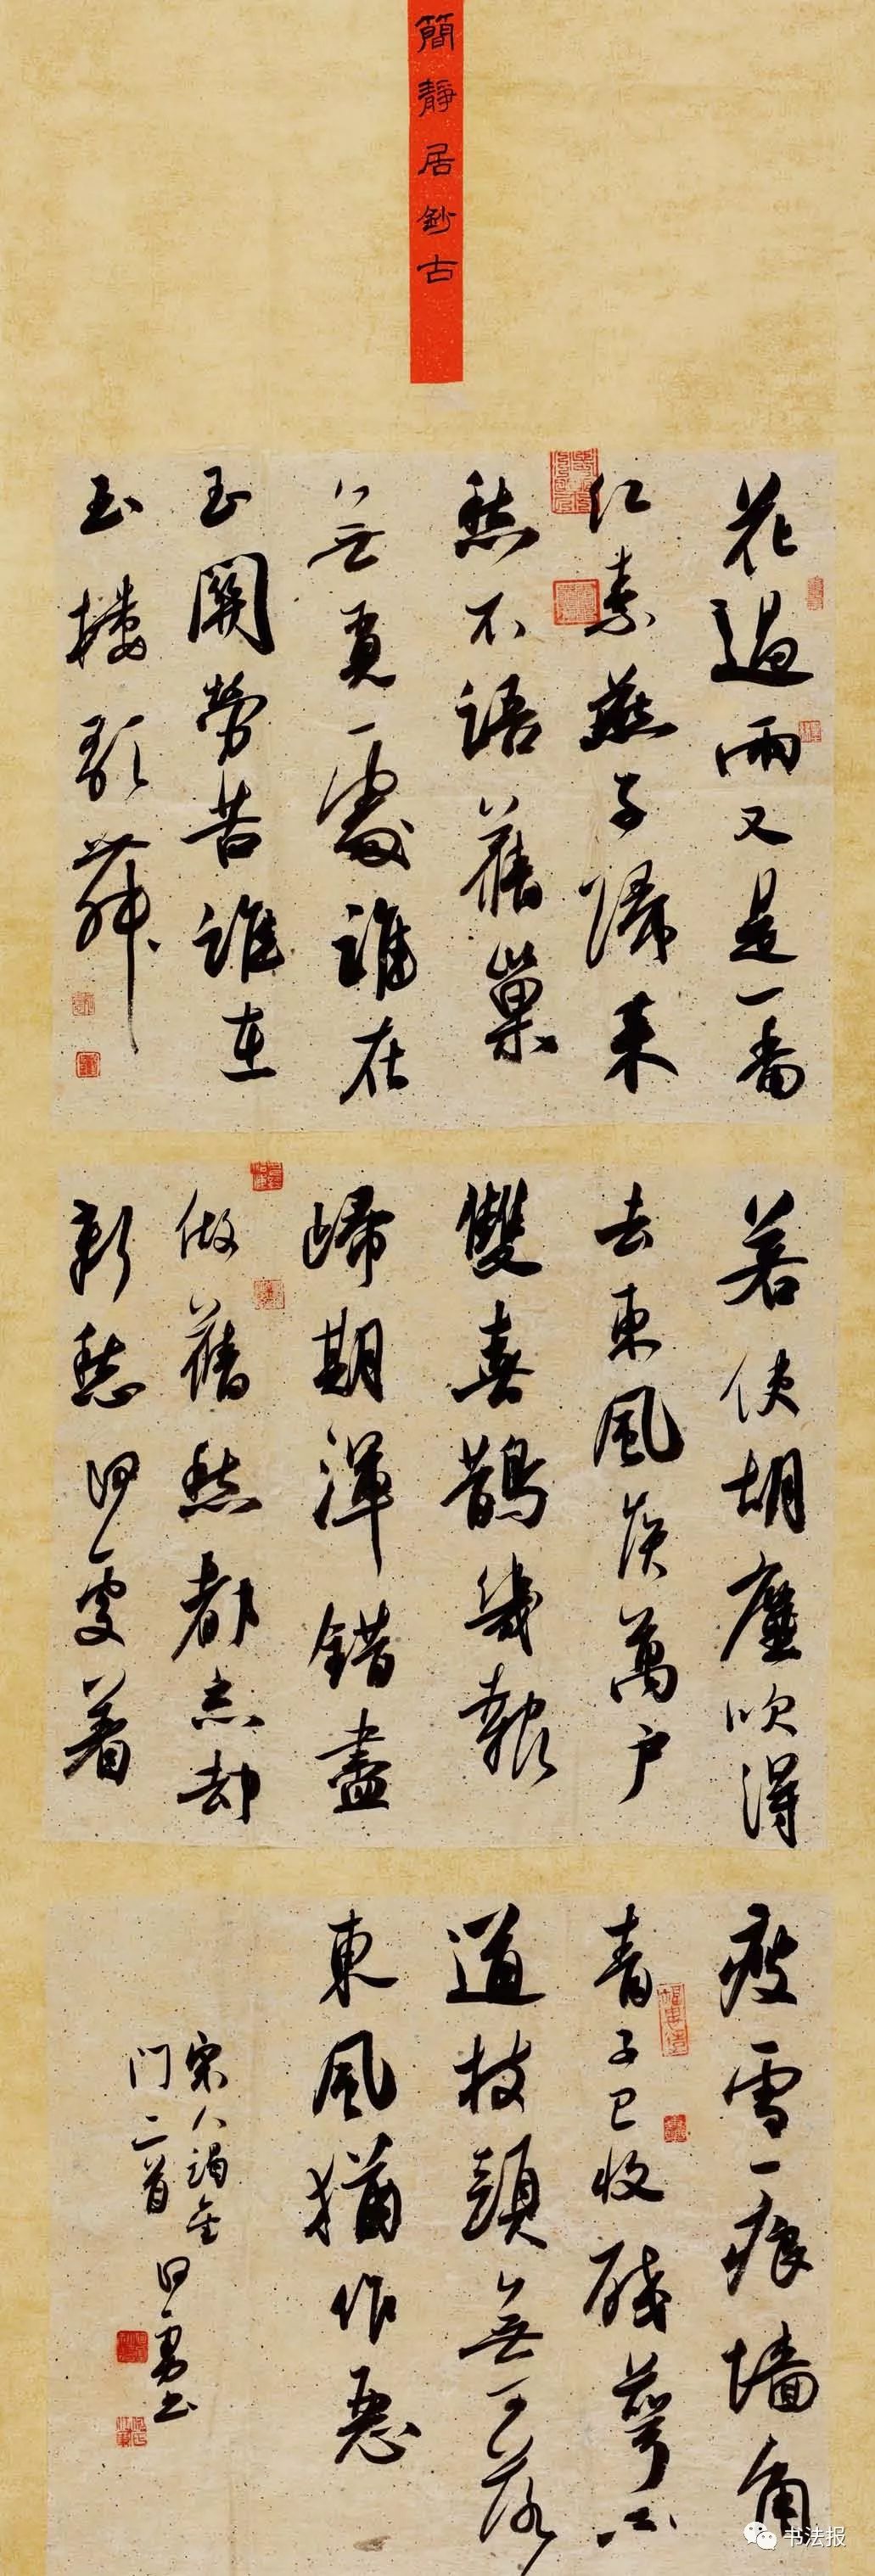 簡靜居鈔古
花過雨又是一番
红素燕子歸來
愁不語舊巢
無覓處誰在
玉關勞苦誰在
玉樓歌舞
若使胡塵吹得
去東風侯萬户
雙喜鵲幾報
歸期渾錯盡
做舊愁都忘却
新愁何處着
瘦雪一痕墻角
青子已收殘萼不
道枝頭無可落
東風猶作惡
宋人謁金
門二首
书法报